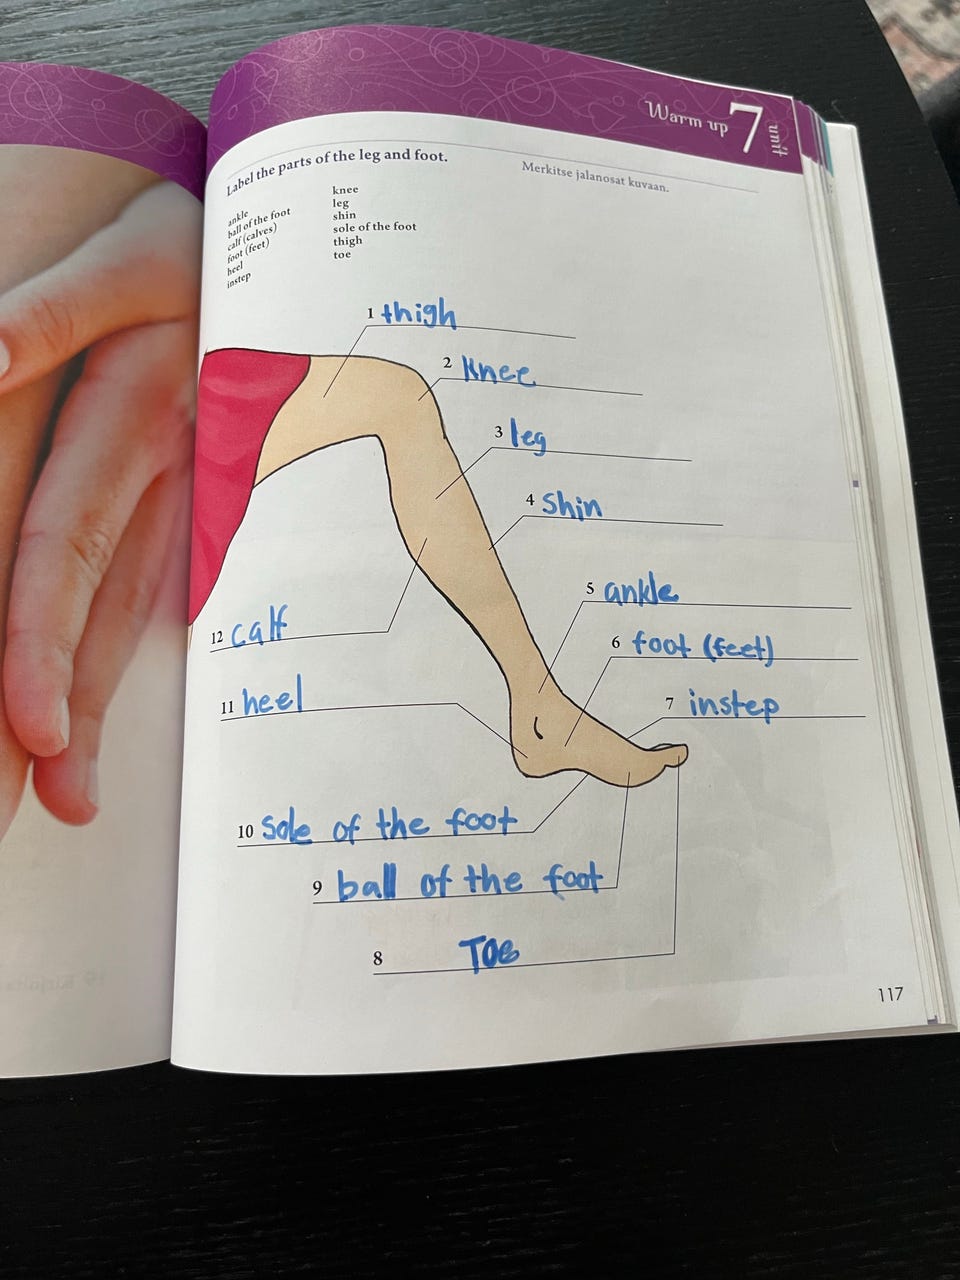 Warm up 7 unit
Label the parts of the leg and foot.
Merkitse jalanosat kuvaan.
ankle
ball of the foot
calf (calves)
foot (feet)
heel
instep
knee
leg
shin
sole of the foot
thigh
toe
1 thigh
2 knee
3 leg
4 shin
5 ankle
6 foot (feet)
7 instep
12 calf
11 heel
10 sole of the foot
9 ball of the foot
8 Toe
117